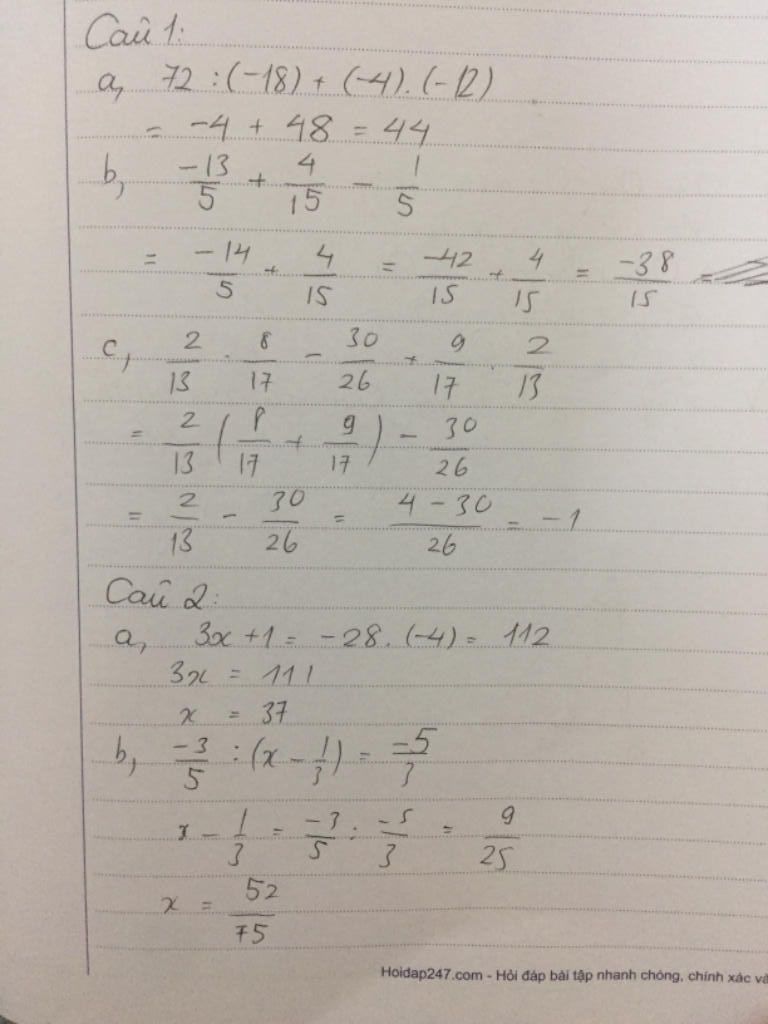 Câu 1:
a, 72 : (-18) + (-4). (-12)
= -4 + 48 = 44
b, -13/5 + 4/15 - 1/5
= -14/5 + 4/15 = -42/15 + 4/15 = -38/15 =
c, 2/13 . 8/17 - 30/26 + 9/17 . 2/13
= 2/13 (8/17 + 9/17) - 30/26
= 2/13 - 30/26 = 4 - 30/26 = -1
Câu 2:
a, 3x + 1 = -28. (-4) = 112
3x = 111
x = 37
b, -3/5 : (x - 1/3) = -5/3
x - 1/3 = -3/5 : -5/3 = 9/25
x = 52/75
Hoidap247.com - Hỏi đáp bài tập nhanh chóng, chính xác và